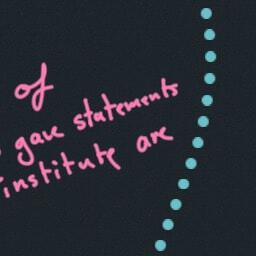 of
gave statements
institute are